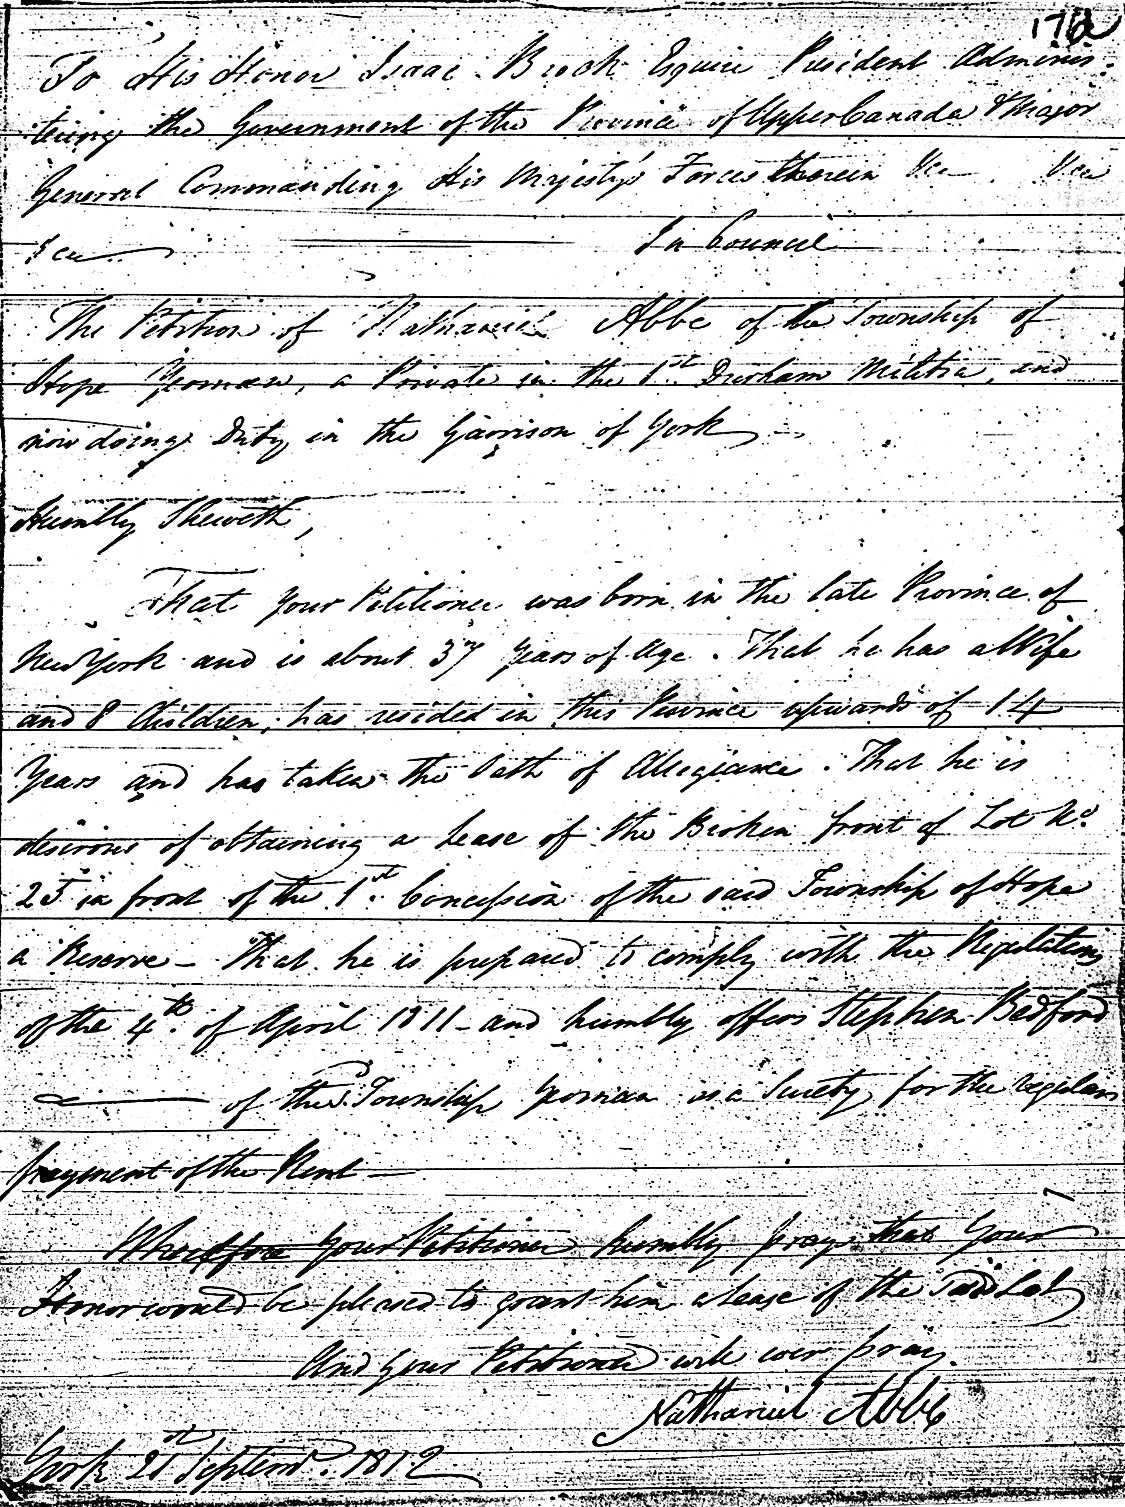 176a
To His Honor Isaac Brock Esquire President Adminis-
tering the Government of the Province of Upper Canada & Major
General Commanding His Majesty's Forces therein &ca &ca
&ca In Council
The Petition of Nathaniel Abbe of the Township of
Hope Yeoman, a Private in the 1st Durham Militia, and
now doing Duty in the Garrison of York
Humbly Sheweth,
That your Petitioner was born in the late Province of
New York and is about 37 Years of Age. That he has a Wife
and 8 Children, has resided in this Province upwards of 14
Years and has taken the Oath of Allegiance. That he is
desirous of obtaining a Lease of the Broken front of Lot No.
25 in front of the 1st Concession of the said Township of Hope
a Reserve - That he is prepared to comply with the Regulations
of the 4th of April 1811 - and humbly offers Stephen Bedford
of the Township Yeoman as a Surety for the regular
payment of the Rent -
Wherefore Your Petitioner humbly prays that Your
Honor would be pleased to grant him a Lease of the said Lot
And Your Petitioner will ever pray.
Nathaniel Abbe
York 21st Septemr. 1812